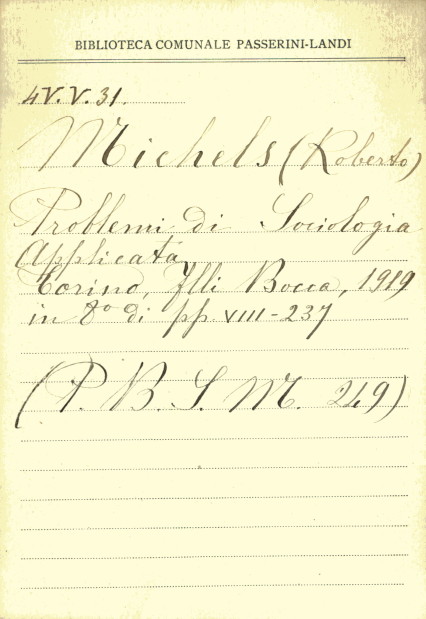 BIBLIOTECA COMUNALE PASSERINI-LANDI
4V.V.31.
Michels (Roberto)
Problemi di Sociologia
Applicata
Torino, Flli Bocca, 1919
in 8º di pp VIII-237
(P. B. S. M. 249)